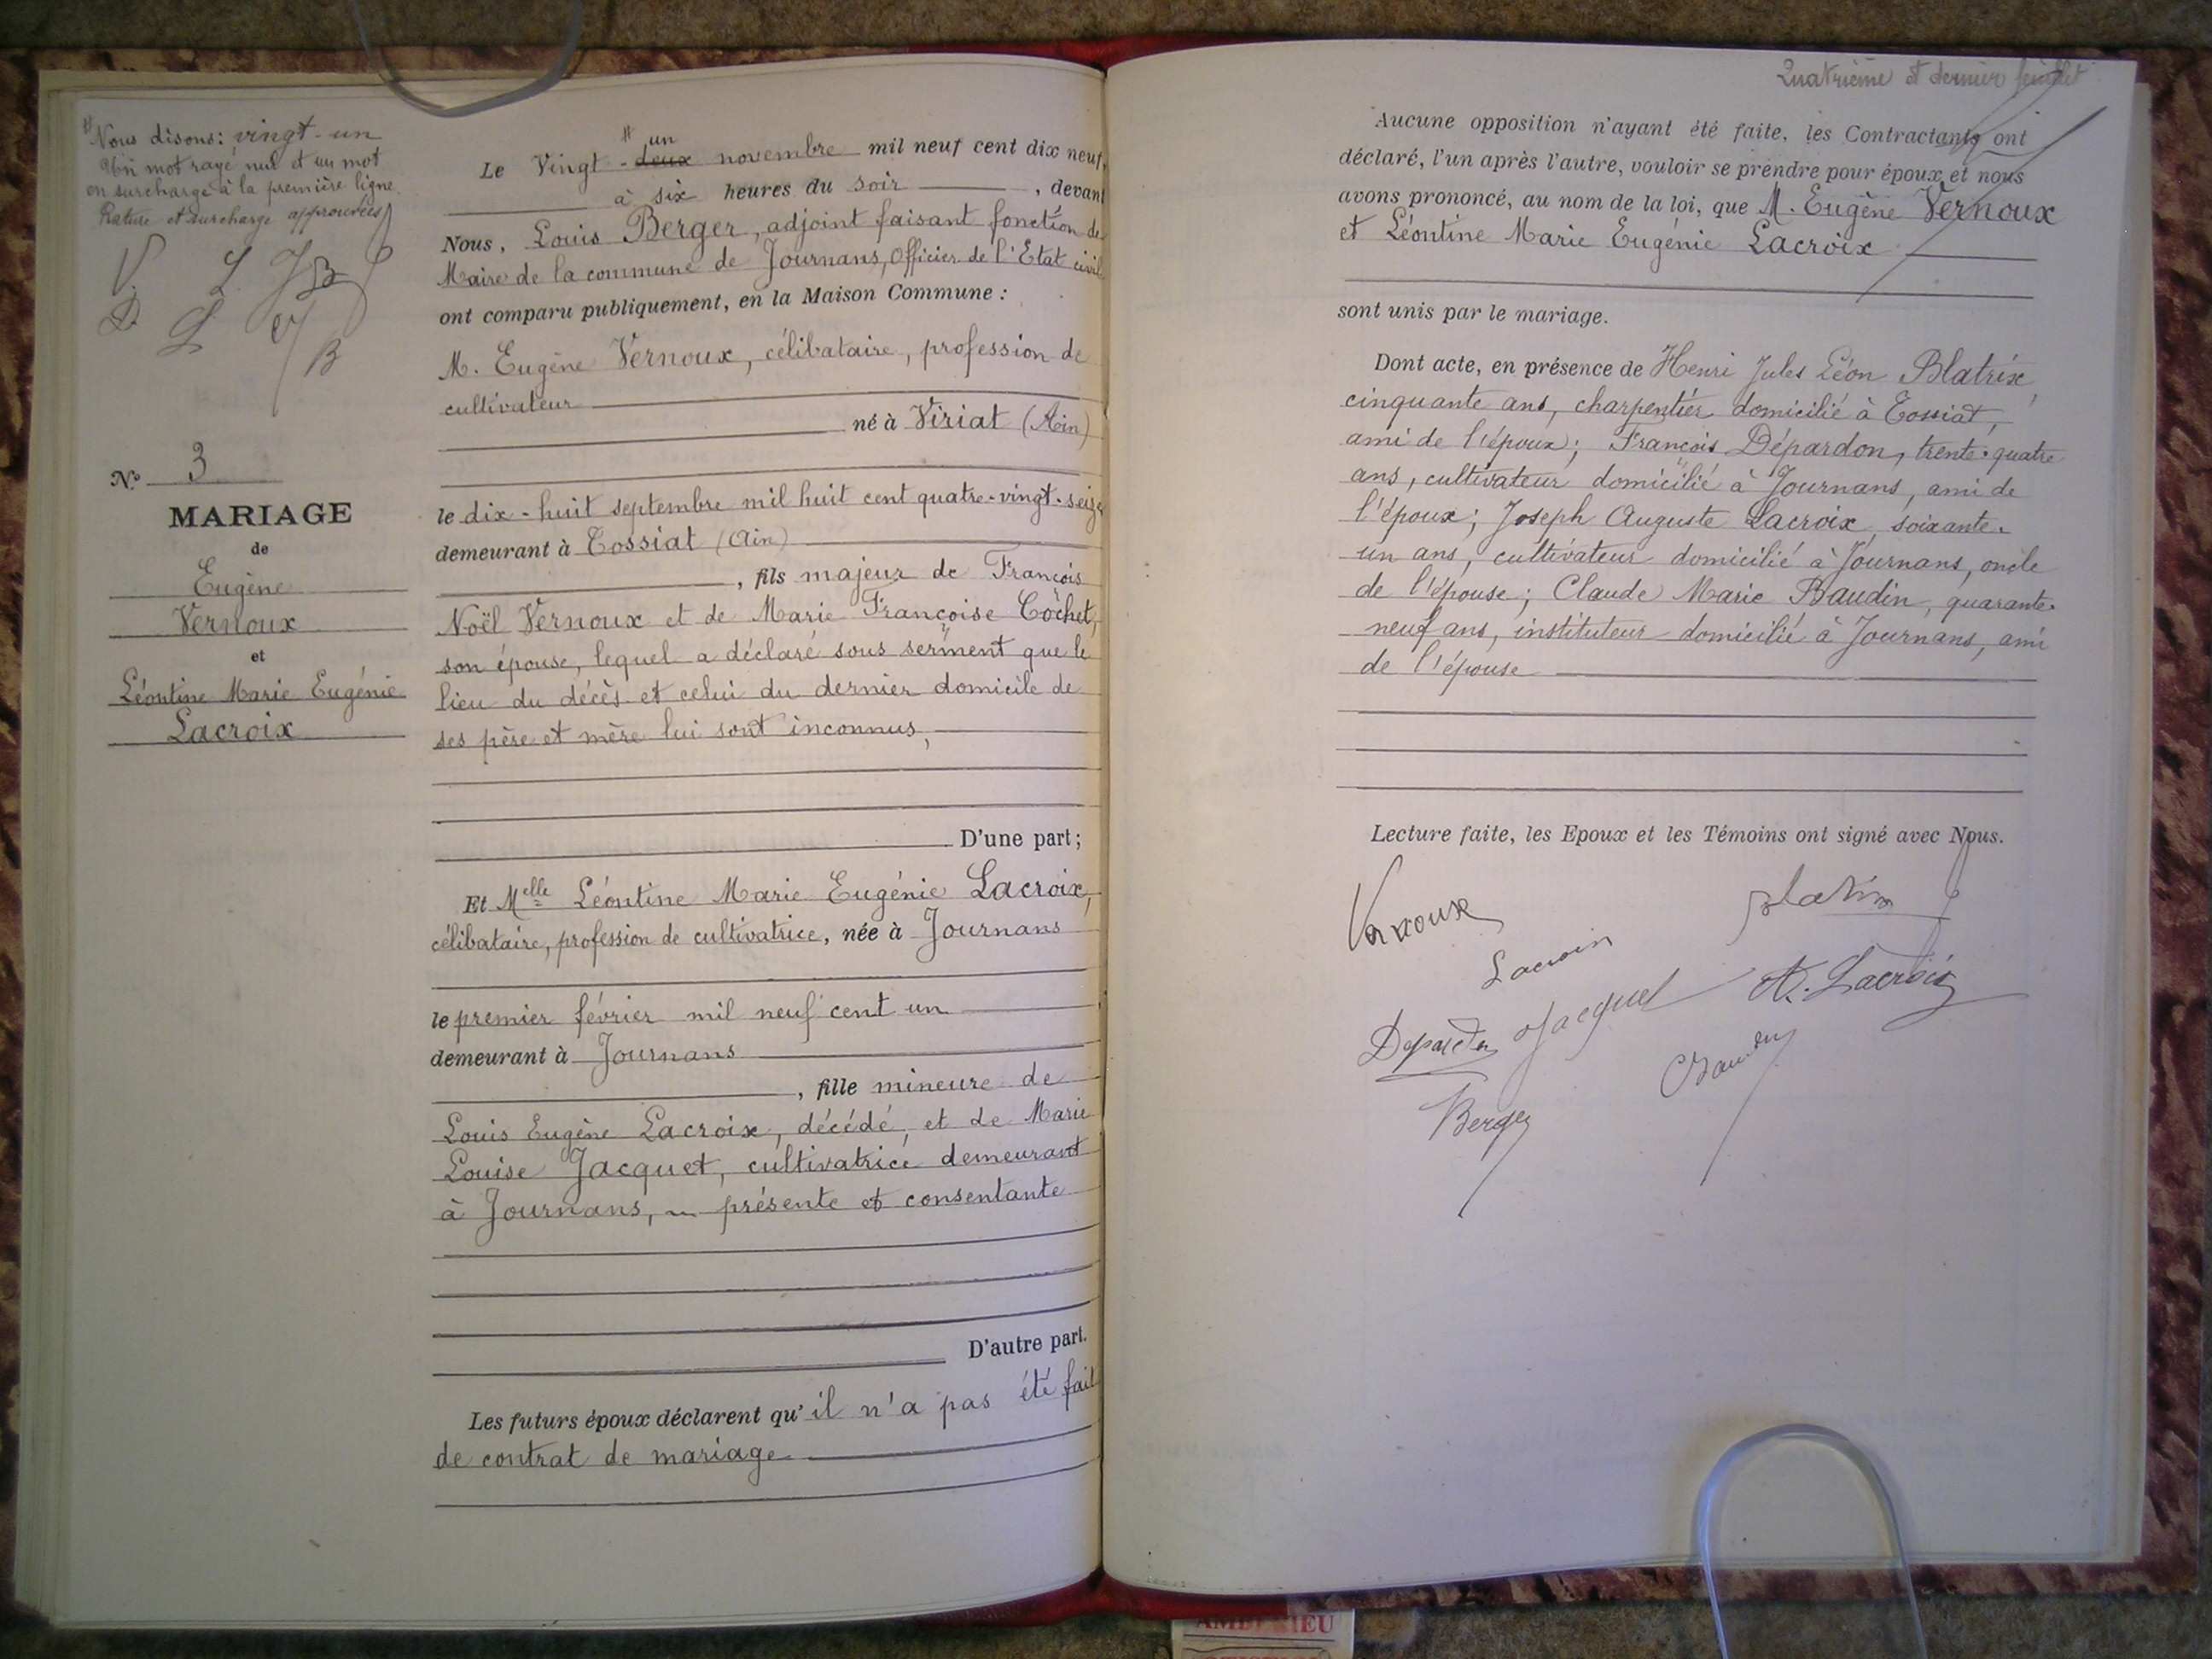 # Nous disons: vingt-un
Un mot rayé nul et un mot
en surcharge à la première ligne.
Rature et surcharge approuvées
V. L J B
D. L
B
N.º 3
MARIAGE
de
Eugène
Vernoux
et
Léontine Marie Eugénie
Lacroix
# un
Le Vingt-deux novembre mil neuf cent dix neuf,
à six heures du soir, devant
Nous, Louis Berger, adjoint faisant fonction de
Maire de la commune de Journans, Officier de l'Etat civil
ont comparu publiquement, en la Maison Commune :
M. Eugène Vernoux, célibataire, profession de
cultivateur
né à Viriat (Ain)
le dix-huit septembre mil huit cent quatre-vingt-seize
demeurant à Tossiat (Ain)
, fils majeur de François
Noël Vernoux et de Marie Françoise Cochet,
son épouse, lequel a déclaré sous serment que le
lieu du décès et celui du dernier domicile de
ses père et mère lui sont inconnus,
D'une part;
Et Melle Léontine Marie Eugénie Lacroix,
célibataire, profession de cultivatrice, née à Journans
le premier février mil neuf cent un
demeurant à Journans
, fille mineure de
Louis Eugène Lacroix, décédé, et de Marie
Louise Jacquet, cultivatrice demeurant
à Journans, présente et consentante
D'autre part.
Les futurs époux déclarent qu'il n'a pas été fait
de contrat de mariage
Quatrième et dernier feuillet
Aucune opposition n'ayant été faite, les Contractants ont
déclaré, l'un après l'autre, vouloir se prendre pour époux et nous
avons prononcé, au nom de la loi, que M. Eugène Vernoux
et Léontine Marie Eugénie Lacroix
sont unis par le mariage.
Dont acte, en présence de Henri Jules Léon Blatrix,
cinquante ans, charpentier domicilié à Tossiat,
ami de l'époux; François Dépardon, trente-quatre
ans, cultivateur domicilié à Journans, ami de
l'époux; Joseph Auguste Lacroix, soixante-
un ans, cultivateur domicilié à Journans, oncle
de l'épouse; Claude Marie Baudin, quarante-
neuf ans, instituteur domicilié à Journans, ami
de l'épouse
Lecture faite, les Epoux et les Témoins ont signé avec Nous.
Vernoux
Blatrix
Lacroix
A. Lacroix
Jacquet
Depardon
Baudin
Berger